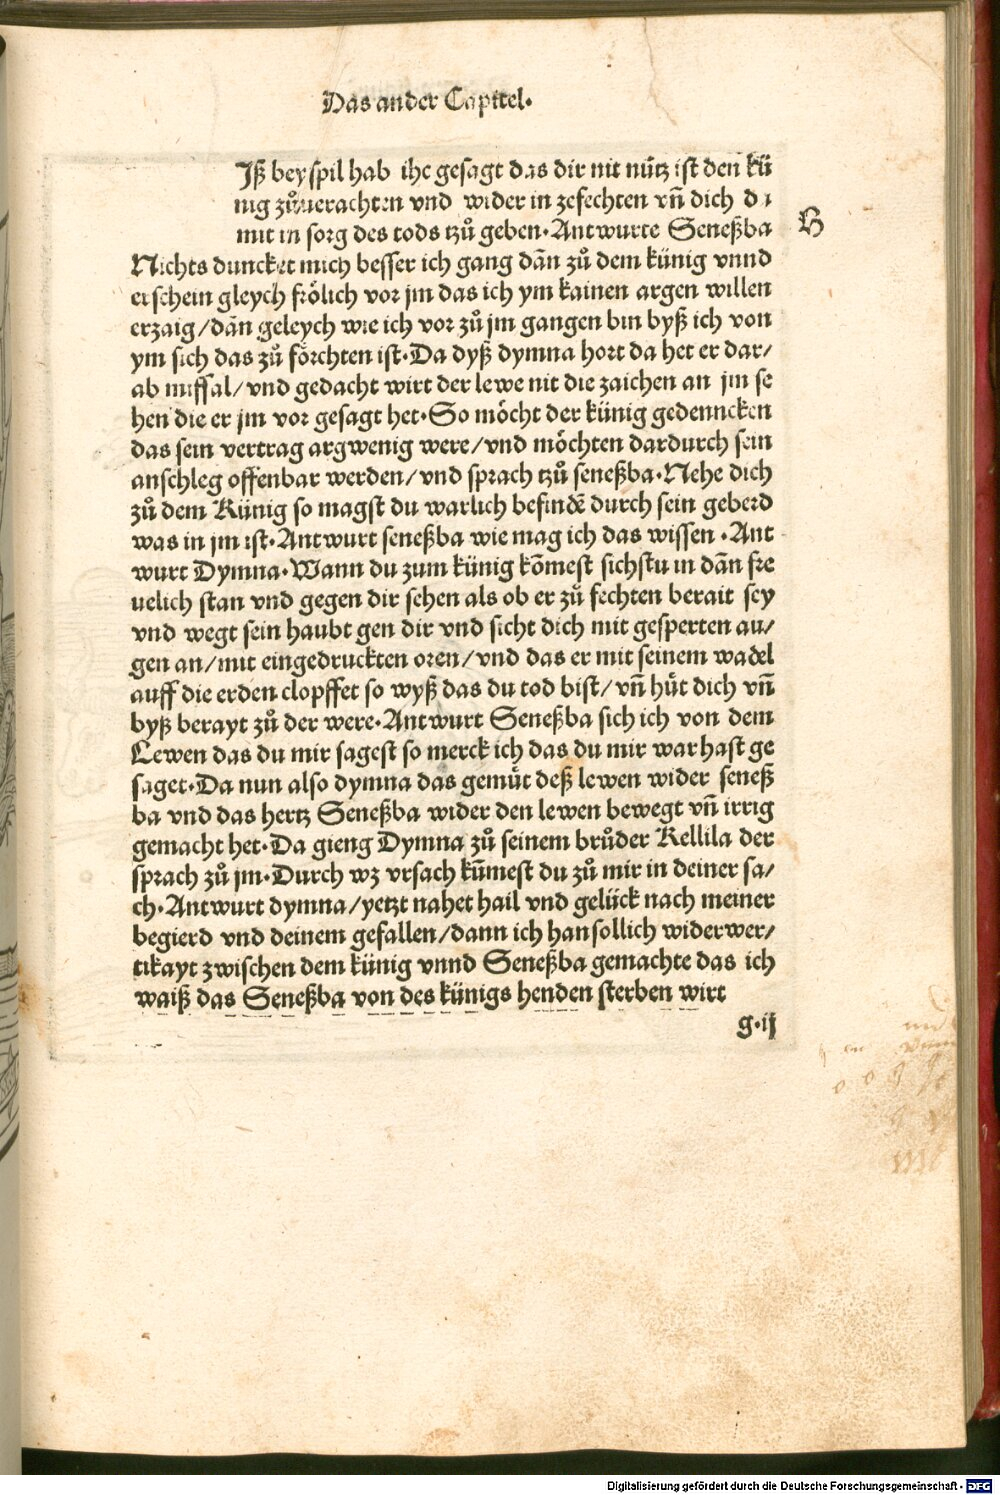 Das ander Capitel.
Jß beyspil hab ihc gesagt das dir nit nütz ist den kü
nig zůuerachten vnd wider in zefechten vn̄ dich da
mit in sorg des tods tzů geben. Antwurte Seneßba
B
Nichts duncket mich besser ich gang dān zů dem künig vnnd
erschein gleych frölich vor jm das ich ym kainen argen willen
erzaig/dān geleych wie ich vor zů jm gangen bin byß ich von
ym sich das zů förchten ist. Da dyß dymna hort da het er dar/
ab missal/vnd gedacht wirt der lewe nit die zaichen an jm se
hen die er jm vor gesagt het. So möcht der künig gedenncken
das sein vertrag argwenig were/vnd möchten dardurch sein
anschleg offenbar werden/vnd sprach tzů seneßba. Nehe dich
zů dem Künig so magst du warlich befindē durch sein geberd
was in jm ist. Antwurt seneßba wie mag ich das wissen . Ant
wurt Dymna. Wann du zum künig kōmest sichstu in dān fre
uelich stan vnd gegen dir sehen als ob er zů fechten berait sey
vnd wegt sein haubt gen dir vnd sicht dich mit gesperten au/
gen an/mit eingedruckten oren/vnd das er mit seinem wadel
auff die erden clopffet so wyß das du tod bist/vn̄ hüt dich vn̄
byß berayt zů der were. Antwurt Seneßba sich ich von dem
Lewen das du mir sagest so merck ich das du mir war hast ge
saget. Da nun also dymna das gemüt deß lewen wider seneß
ba vnd das hertz Seneßba wider den lewen bewegt vn̄ irrig
gemacht het. Da gieng Dymna zů seinem brůder Kellila der
sprach zů jm. Durch wz vrsach kūmest du zů mir in deiner sa/
ch. Antwurt dymna/yetzt nahet hail vnd gelück nach meiner
begierd vnd deinem gefallen/dann ich han sollich widerwer/
tikayt zwischen dem künig vnnd Seneßba gemachte das ich
waiß das Seneßba von des künigs henden sterben wirt
g.ij
Digitalisierung gefördert durch die Deutsche Forschungsgemeinschaft - DFG